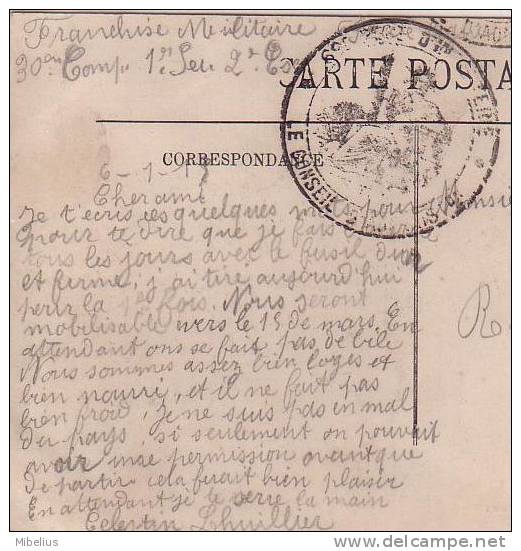 Franchise Militaire
30em Comp 1re Sec 2e
CARTE POSTA
LE CONSEIL
CORRESPONDANCE
6-1-1
Cher ami
Je t'écris ces quelques mots pour
pour te dire que je fais
tous les jours avec le fusil
et ferme, j'ai tiré aujourd'hui
pour la 1re fois. Nous seront
mobilisable vers le 15 de mars. En
attendant ons se fait pas de bile
Nous sommes assez bien loges et
bien nourri, et il ne fait pas
bien froid, je ne suis pas en mal
du pays, si seulement on pouvait
avoir une permission avant que
de partir cela fairait bien plaisir
En attendant je te serre la main
Celestin Lhuillier
R
Mibelius
delcampe.net